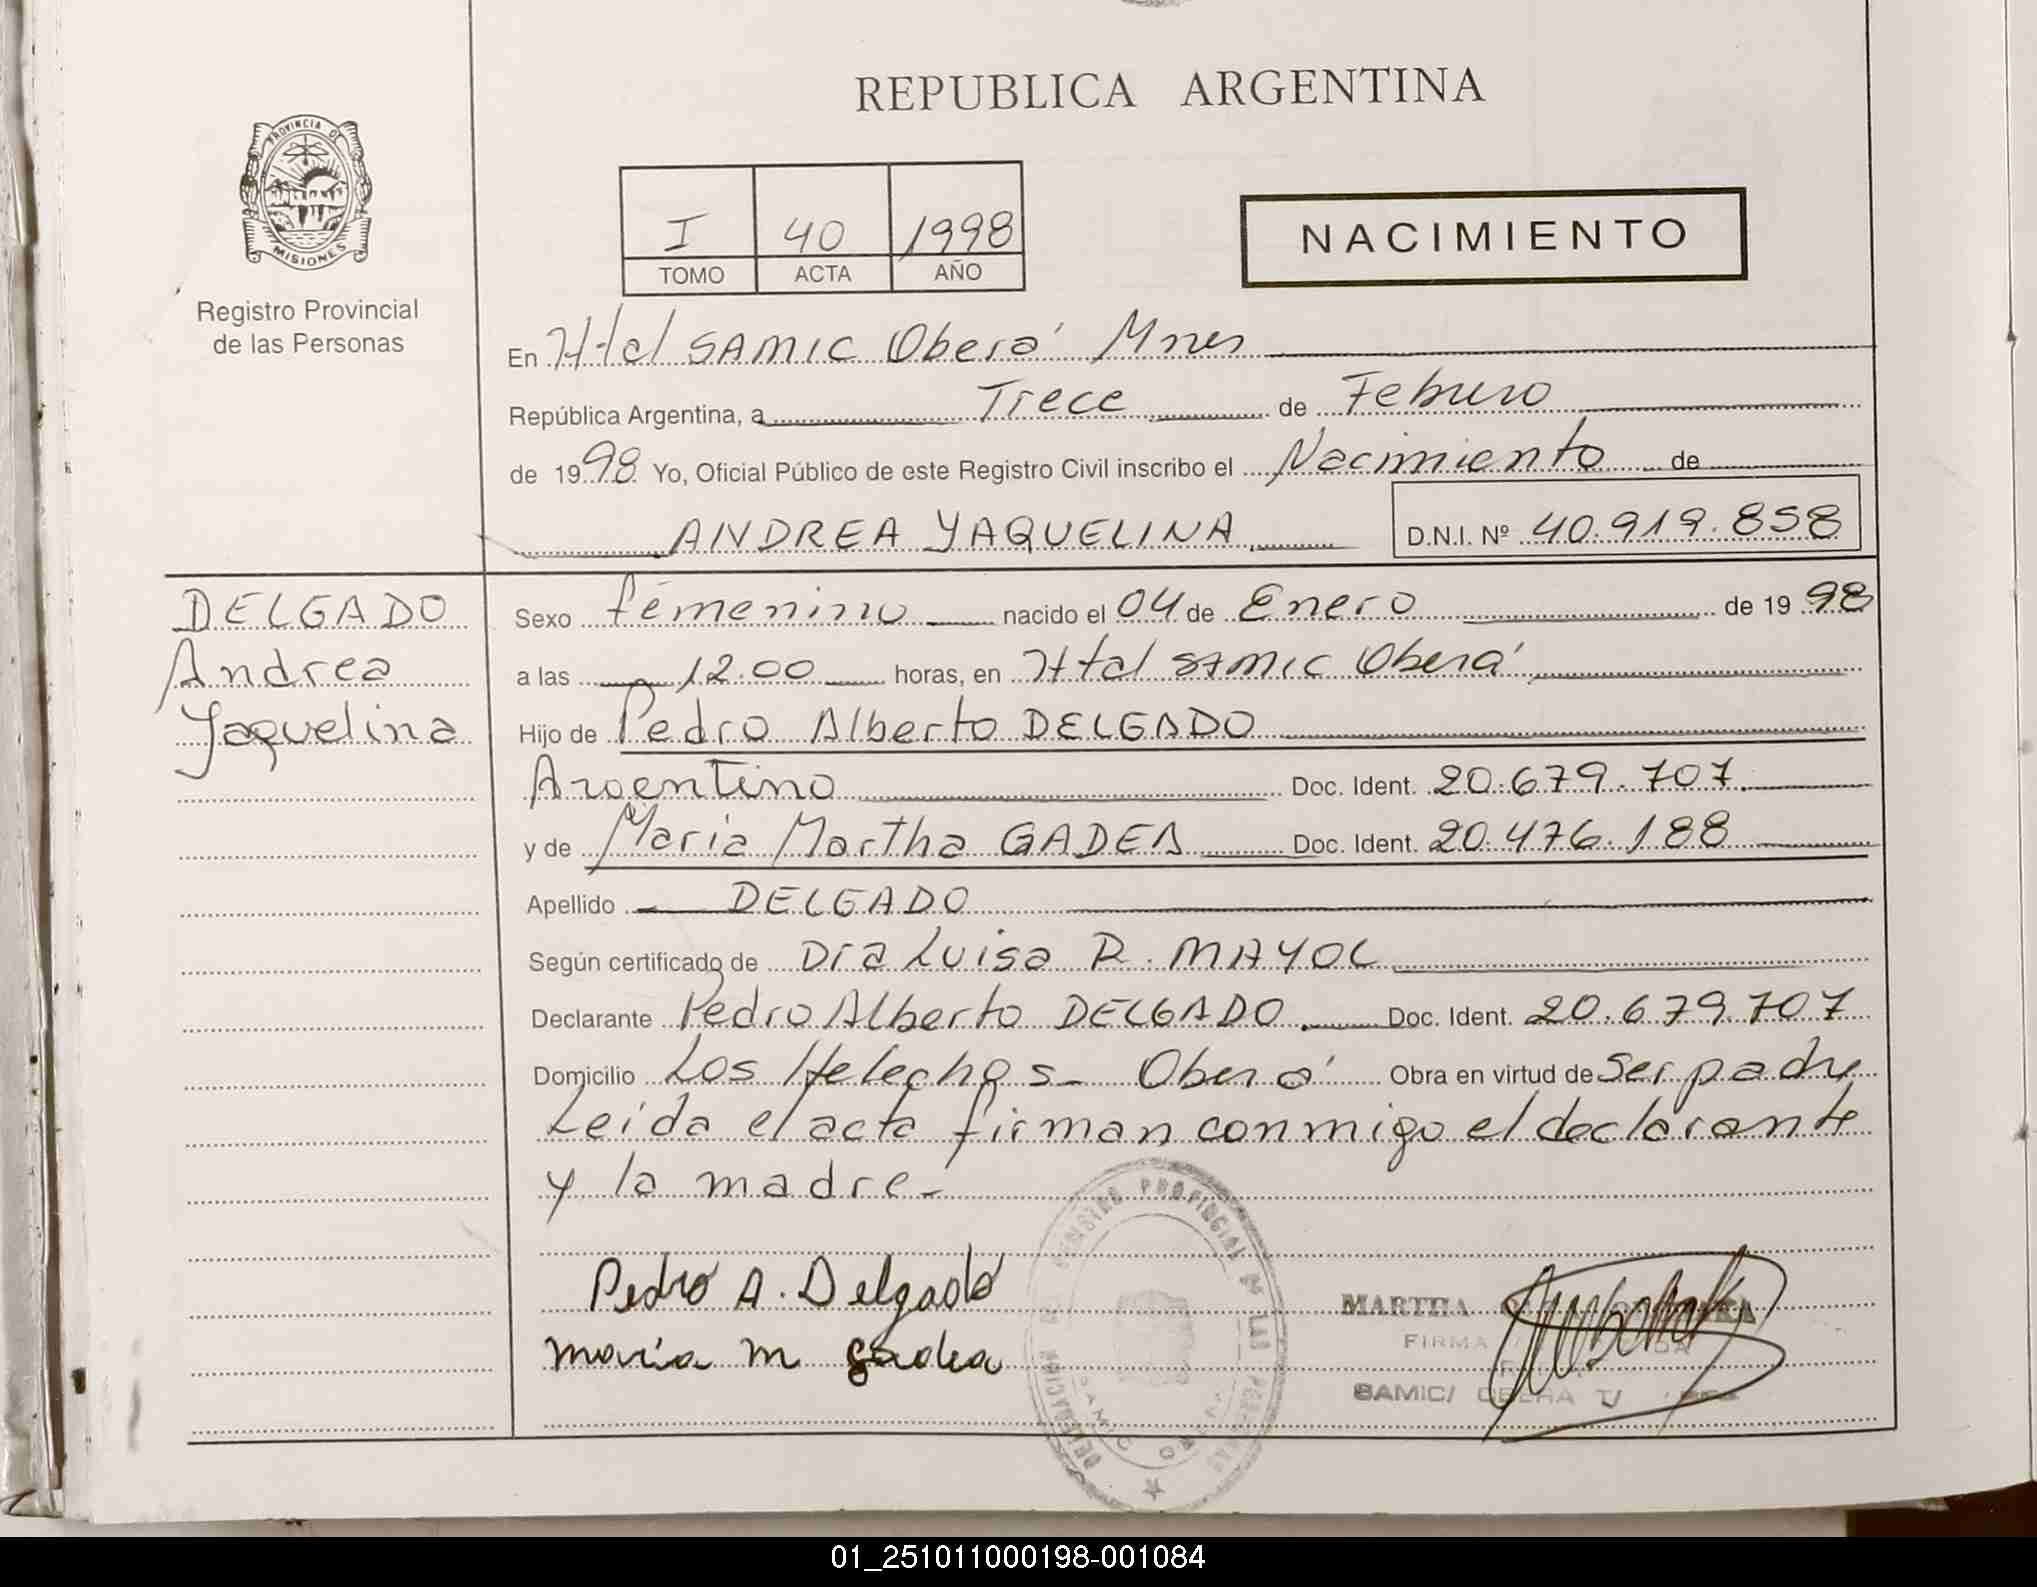 REPUBLICA ARGENTINA
PROVINCIA DE
MISIONES
Registro Provincial
de las Personas
I 40 1998
TOMO ACTA AÑO
NACIMIENTO
En Htal SAMIC Oberá Mnes
República Argentina, a Trece de Febrero
de 1998 Yo, Oficial Público de este Registro Civil inscribo el Nacimiento de
ANDREA YAQUELINA D.N.I. Nº 40.919.858
DELGADO
Andrea
Yaquelina
Sexo femenino nacido el 04 de Enero de 1998
a las 12.00 horas, en Htal SAMIC Oberá
Hijo de Pedro Alberto DELGADO
Argentino Doc. Ident. 20.679.707
y de María Martha GADEA Doc. Ident. 20.476.188
Apellido DELGADO
Según certificado de Dra Luisa R. MAYOL
Declarante Pedro Alberto DELGADO Doc. Ident. 20.679.707
Domicilio Los Helechos - Oberá Obra en virtud de ser padre
Leída el acta firman conmigo el declarante
y la madre -
Pedro A. Delgado
maria m gadea
REGISTRO PROVINCIAL DE LAS PERSONAS
DELEGACION
MARTHA
FIRMA
SAMIC/ OBERA
01_251011000198-001084